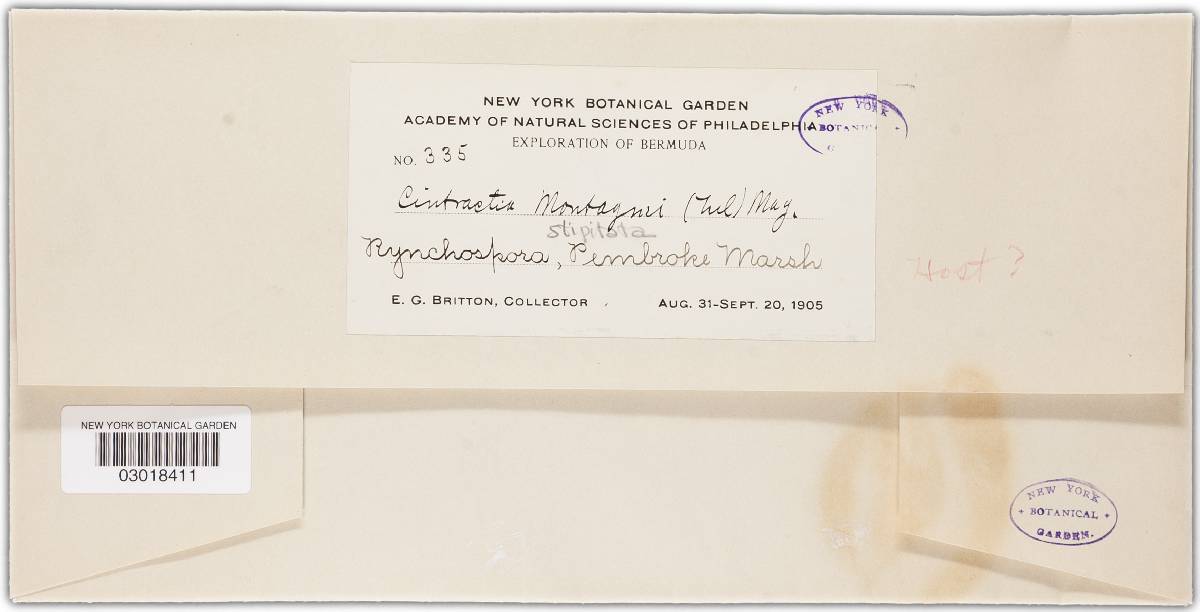 NEW YORK BOTANICAL GARDEN
ACADEMY OF NATURAL SCIENCES OF PHILADELPHIA
EXPLORATION OF BERMUDA
NO. 335
Cintractia Montagnei (Tul) Mag.
stipitata
Rynchospora, Pembroke Marsh
E. G. BRITTON, COLLECTOR AUG. 31-SEPT. 20, 1905
NEW YORK
BOTANIC
G
Host?
NEW YORK BOTANICAL GARDEN
03018411
NEW YORK
+ BOTANICAL +
GARDEN.